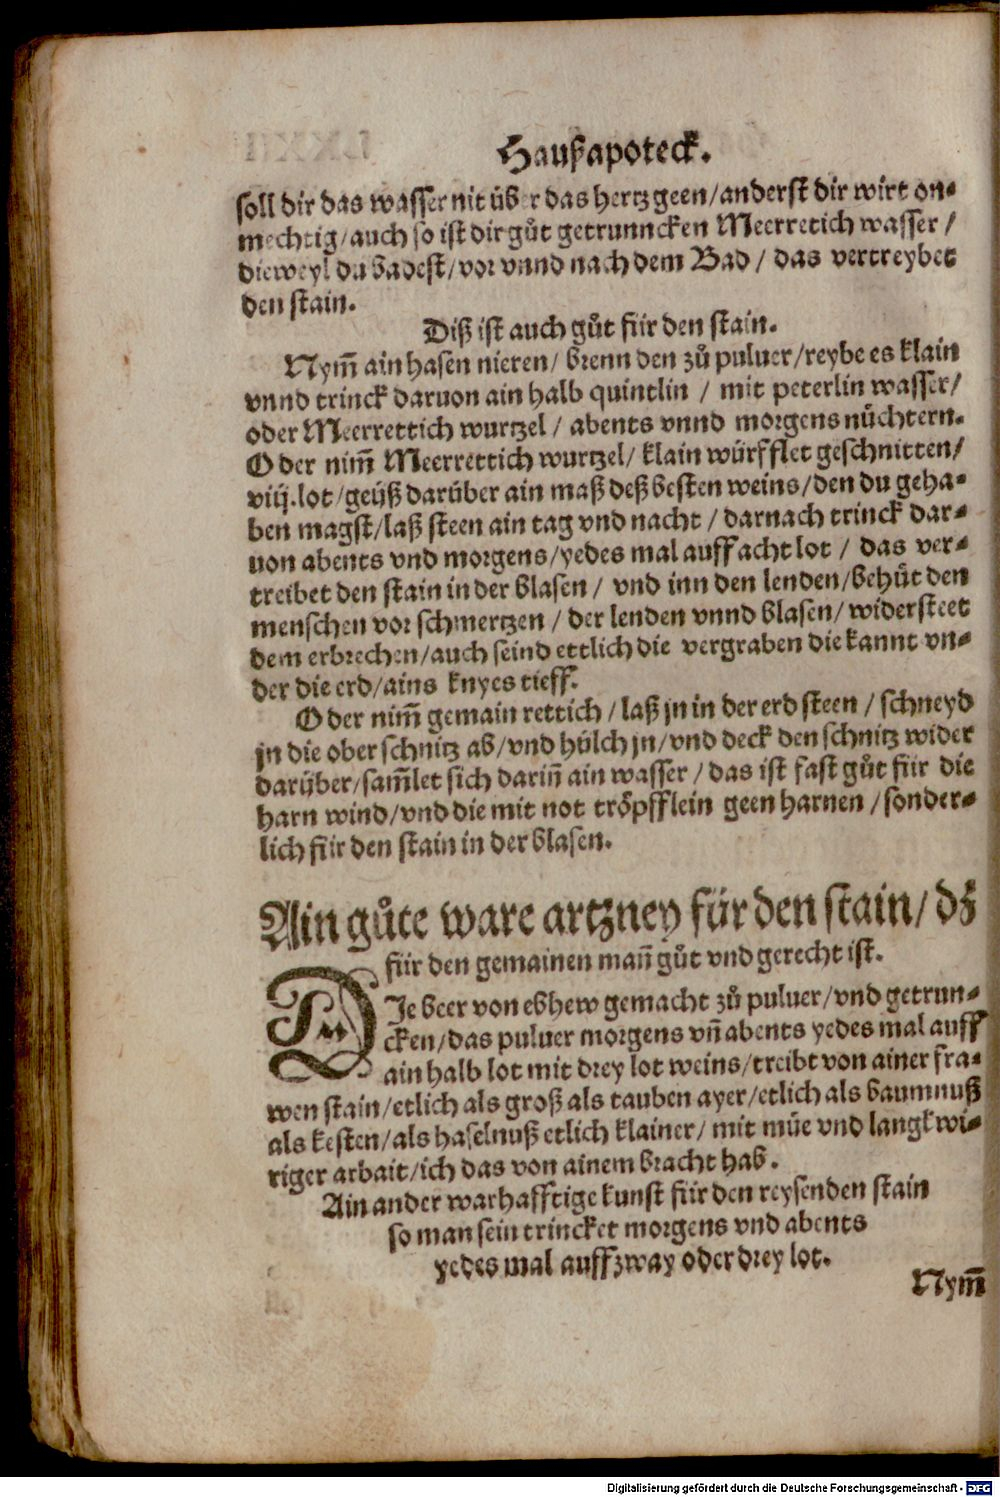 Haußapoteck.
soll dir das wasser nit über das hertz geen/anderst dir wirt on⸗
mechtig/auch so ist dir gůt getrunncken Meerretich wasser /
dieweyl du badest/vor vnnd nach dem Bad / das vertreybet
den stain.
Diß ist auch gůt für den stain.
Nym̃ ain hasen nieren/ brenn den zů puluer/reybe es klain
vnnd trinck daruon ain halb quintlin / mit peterlin wasser/
oder Meerrettich wurtzel / abents vnnd morgens nůchtern.
Oder nim̃ Meerrettich wurtzel/ klain würfflet geschnitten/
viij.lot/geüß darüber ain maß deß besten weins/den du geha⸗
ben magst/laß steen ain tag vnd nacht / darnach trinck dar⸗
uon abents vnd morgens/yedes mal auff acht lot / das ver⸗
treibet den stain in der blasen / vnd inn den lenden/behůt den
menschen vor schmertzen / der lenden vnnd blasen/ widersteet
dem erbrechen/auch seind ettlich die vergraben die kannt vn⸗
der die erd/ains knyes tieff.
Oder nim̃ gemain rettich / laß jn in der erd steen / schneyd
jn die ober schnitz ab/vnd hülch jn/vnd deck den schnitz wider
darüber/sam̃let sich dariñ ain wasser / das ist fast gůt für die
harn wind/vnd die mit not tröpfflein geen harnen /sonder⸗
lich für den stain in der blasen.
Ain gůte ware artzney für den stain/ dz
für den gemainen mañ gůt vnd gerecht ist.
DJe beer von ebhew gemacht zů puluer/vnd getrun⸗
cken/das puluer morgens vñ abents yedes mal auff
ain halb lot mit drey lot weins/treibt von ainer fra⸗
wen stain/etlich als groß als tauben ayer/etlich als baumnuß
als kesten/als haselnuß etlich klainer/ mit müe vnd langkwi⸗
riger arbait/ich das von ainem bracht hab.
Ain ander warhafftige kunst für den reysenden stain
so man sein trincket morgens vnd abents
yedes mal auff zway oder drey lot.
Nym̃
Digitalisierung gefördert durch die Deutsche Forschungsgemeinschaft - DFG